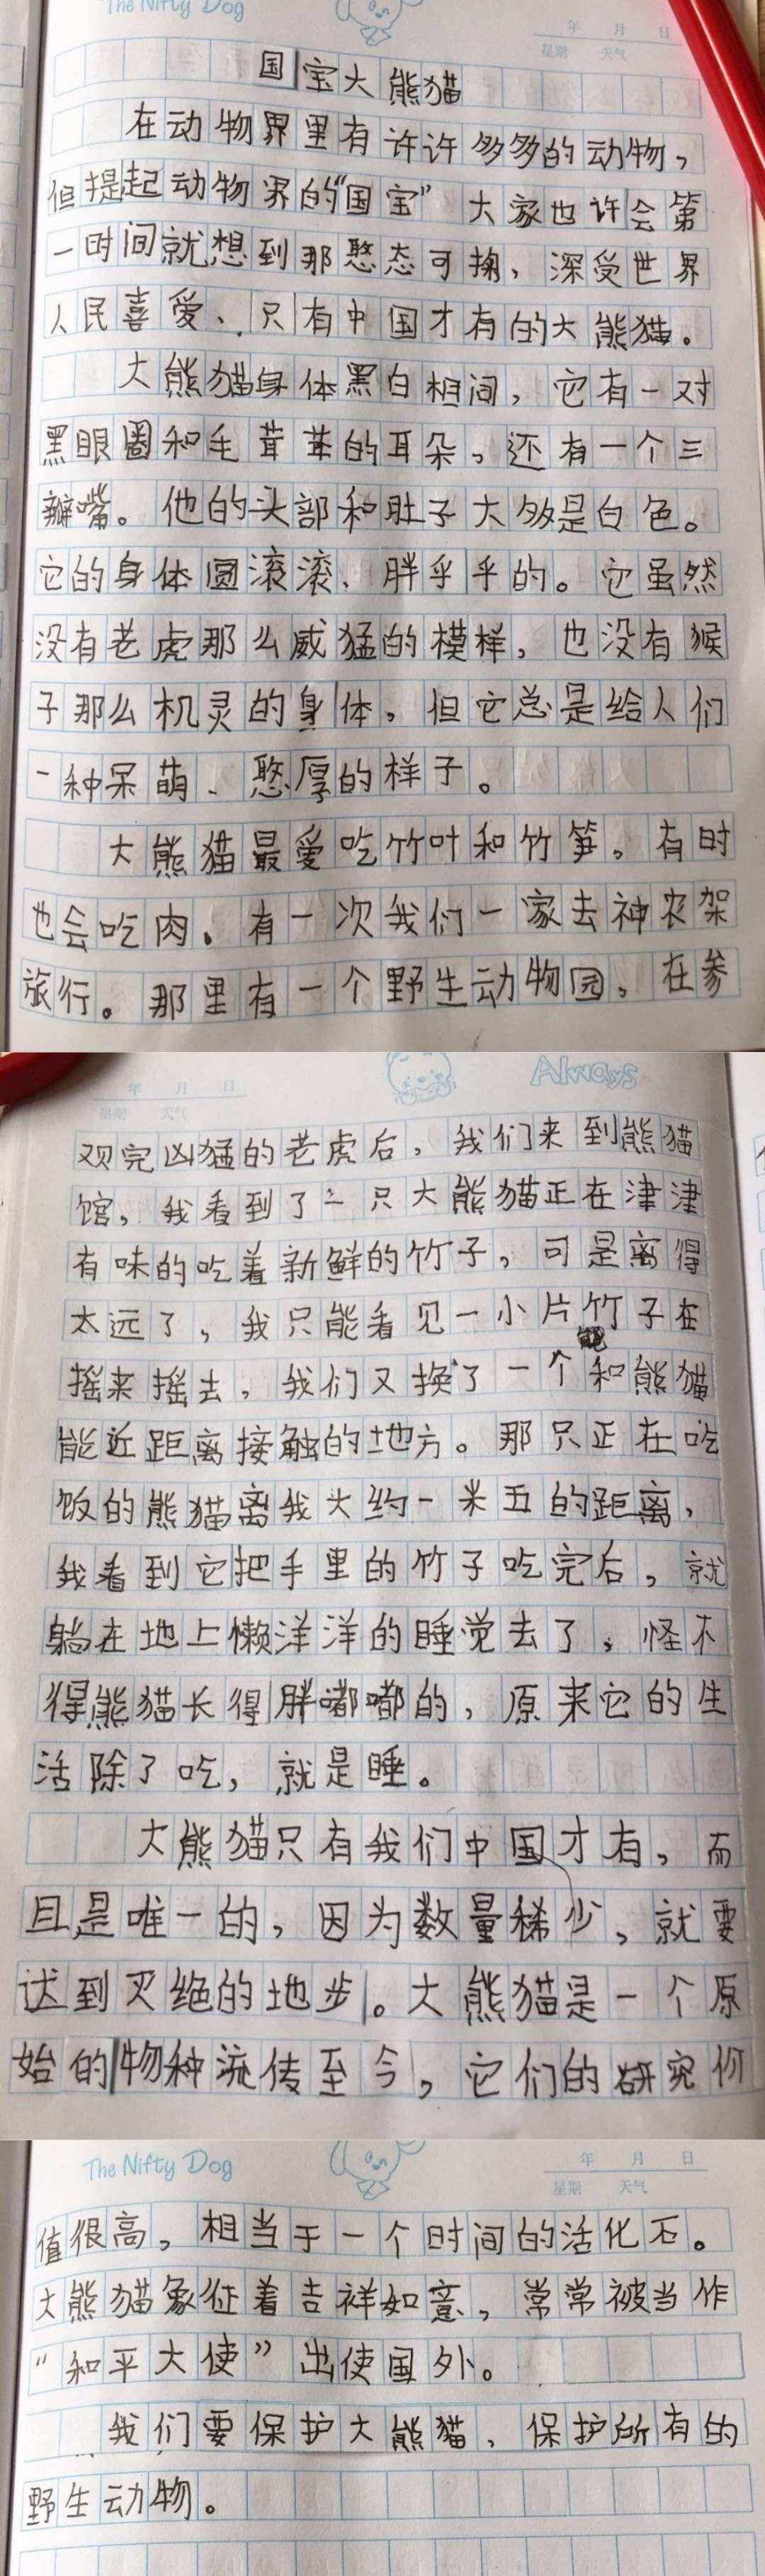 The Nifty Dog
年 月 日
星期 天气
国宝大熊猫
在动物界里有许许多多的动物，
但提起动物界的“国宝”大家也许会第
一时间就想到那憨态可掬，深受世界
人民喜爱、只有中国才有的大熊猫。
大熊猫身体黑白相间，它有一对
黑眼圈和毛茸茸的耳朵。还有一个三
瓣嘴。他的头部和肚子大多是白色。
它的身体圆滚滚、胖乎乎的。它虽然
没有老虎那么威猛的模样，也没有猴
子那么机灵的身体，但它总是给人们
一种呆萌、憨厚的样子。
大熊猫最爱吃竹叶和竹笋。有时
也会吃肉。有一次我们一家去神农架
旅行。那里有一个野生动物园，在参
年 月 日
星期 天气
Always
观完凶猛的老虎后，我们来到熊猫
馆，我看到了一只大熊猫正在津津
有味的吃着新鲜的竹子，可是离得
太远了，我只能看见一小片竹子在
摇来摇去，我们又换了一个和熊猫
能近距离接触的地方。那只正在吃
饭的熊猫离我大约一米五的距离，
我看到它把手里的竹子吃完后，就
躺在地上懒洋洋的睡觉去了，怪不
得熊猫长得胖嘟嘟的，原来它的生
活除了吃，就是睡。
大熊猫只有我们中国才有，而
且是唯一的，因为数量稀少，就要
达到灭绝的地步。大熊猫是一个原
始的物种流传至今，它们的研究价
The Nifty Dog
年 月 日
星期 天气
值很高，相当于一个时间的活化石。
大熊猫象征着吉祥如意，常常被当作
“和平大使”出使国外。
我们要保护大熊猫，保护所有的
野生动物。